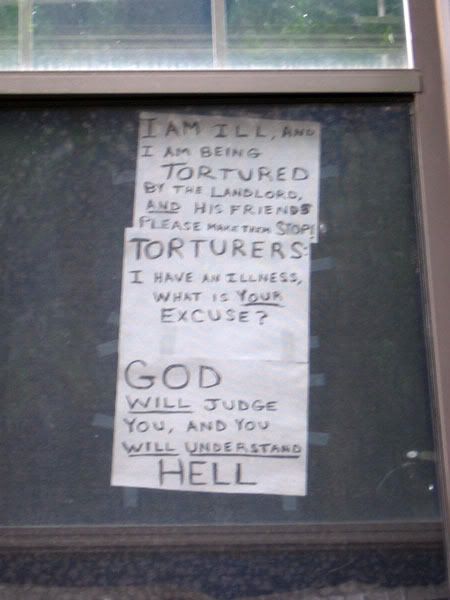 I AM ILL, AND
I AM BEING
TORTURED
BY THE LANDLORD,
AND HIS FRIENDS
PLEASE MAKE THEM STOP!
TORTURERS:
I HAVE AN ILLNESS,
WHAT IS YOUR
EXCUSE?
GOD
WILL JUDGE
YOU, AND YOU
WILL UNDERSTAND
HELL